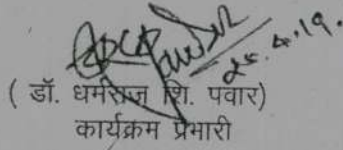 25.4.19.
( डॉ. धर्मराज शि. पवार)
कार्यक्रम प्रभारी